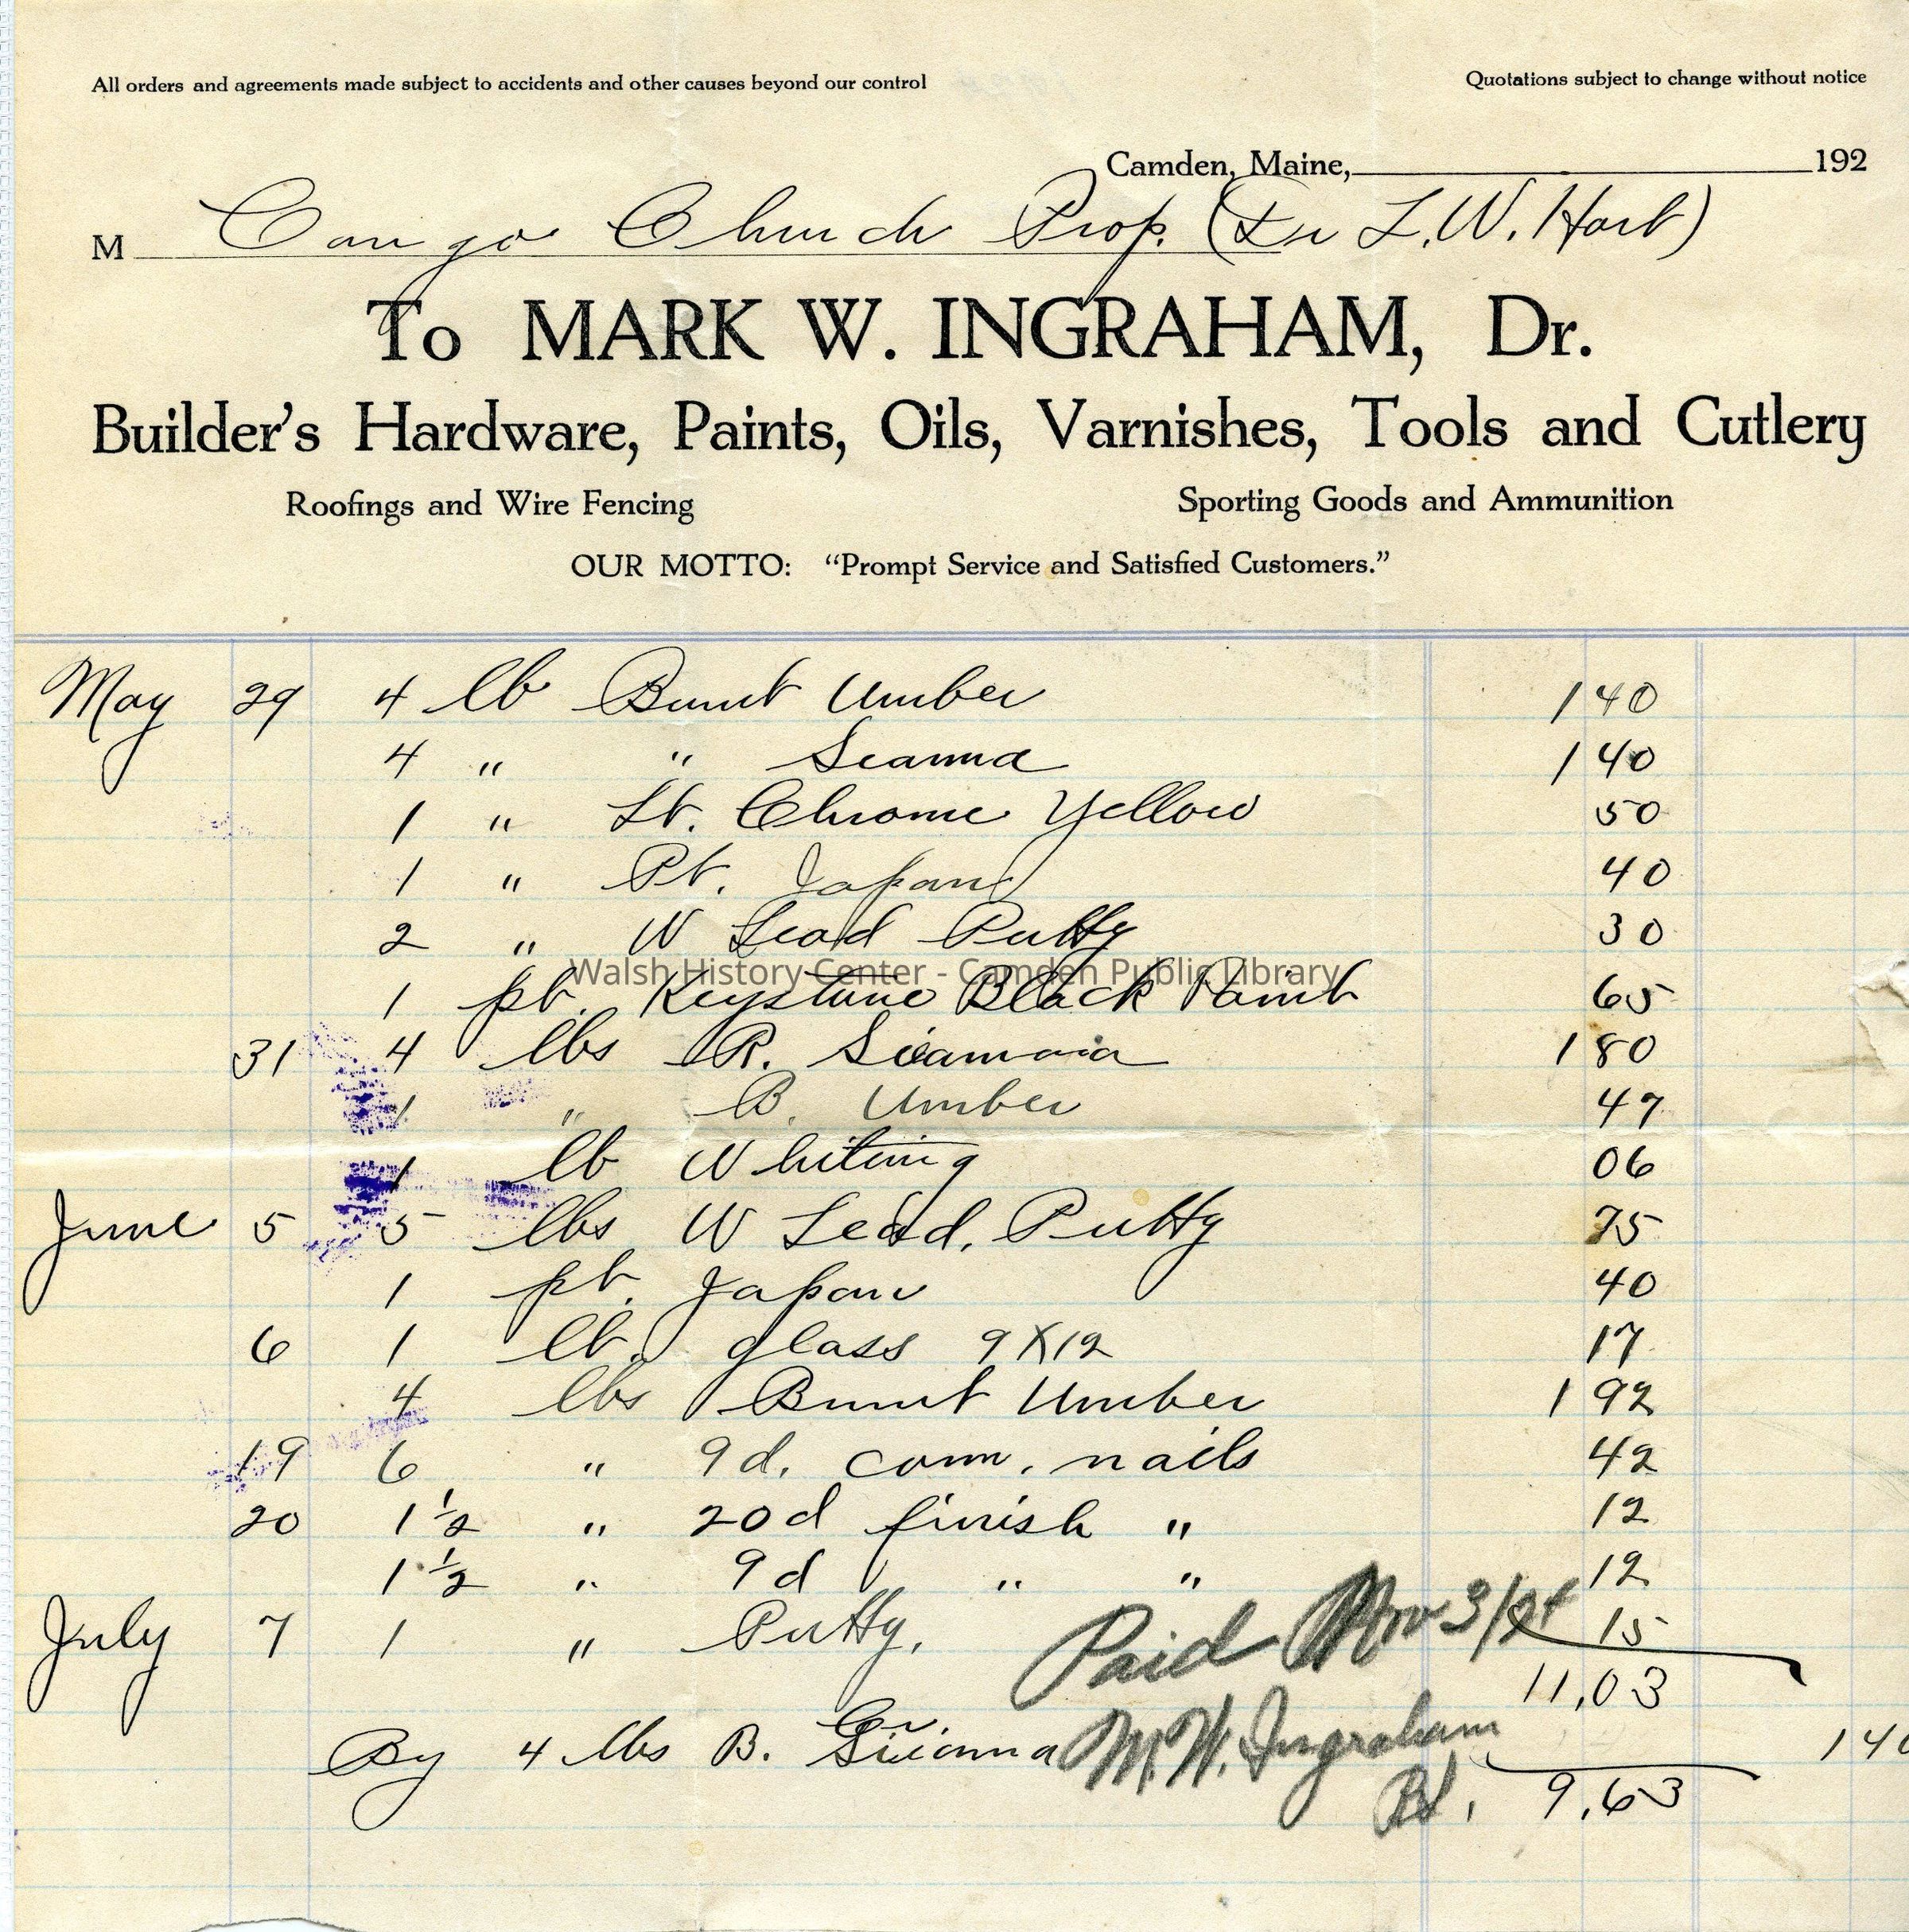 All orders and agreements made subject to accidents and other causes beyond our control
Quotations subject to change without notice
Camden, Maine, 192
M Congo Church Prop. (Dr L. W. Hart)
To MARK W. INGRAHAM, Dr.
Builder's Hardware, Paints, Oils, Varnishes, Tools and Cutlery
Roofings and Wire Fencing Sporting Goods and Ammunition
OUR MOTTO: "Prompt Service and Satisfied Customers."
May 29 4 lb Burnt Umber 1 40
4 " " Seanna 1 40
1 " Lt. Chrome Yellow 50
1 " Pt. Japan 40
2 " W Lead Putty 30
Walsh History Center - Camden Public Library
1 pt. Keystone Black Paint 65
31 4 lbs R. Sieanna 1 80
1 " B. Umber 47
1 lb Whiting 06
June 5 5 lbs W Lead. Putty 75
1 pt. Japan 40
6 1 lt. glass 9X12 17
4 lbs Burnt Umber 1 92
19 6 " 9d. com. nails 42
20 1 1/2 " 20d finish " 12
1 1/2 " 9d " " 12
July 7 1 " Putty. 15
Paid Nov 3/24
11,03
By 4 lbs B. Sieanna 140
Cr.
M. W. Ingraham
9.63